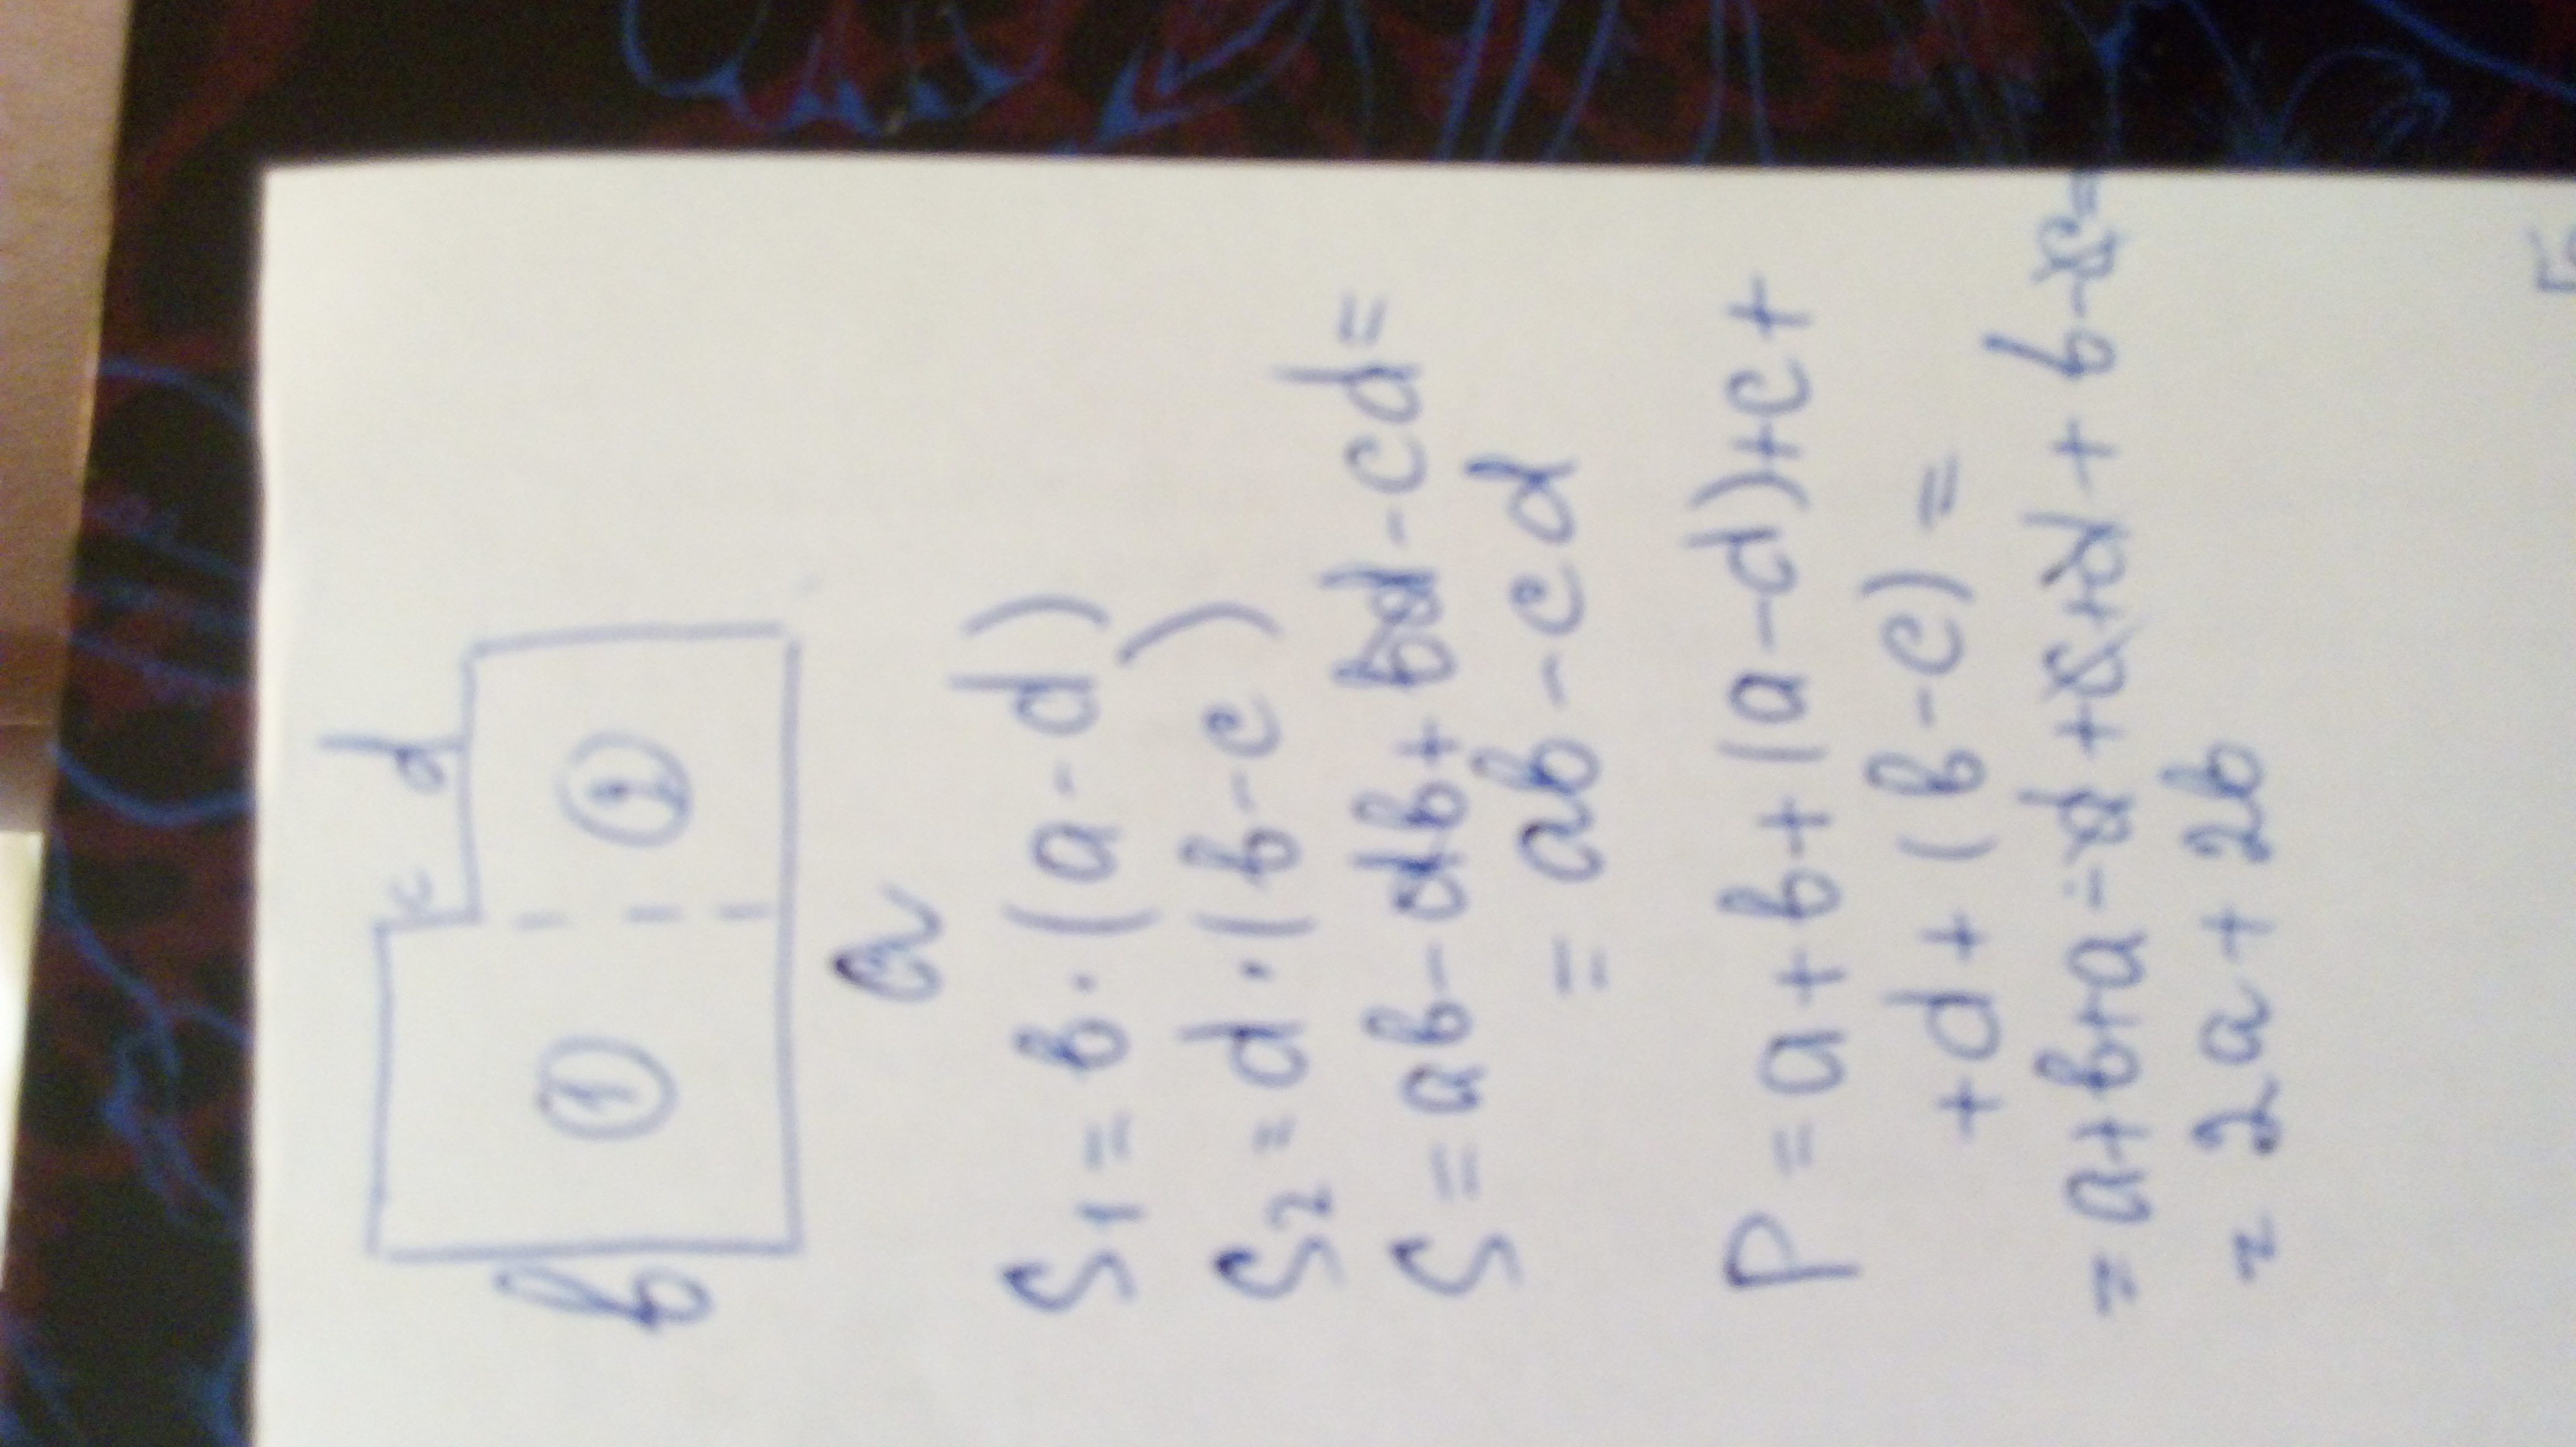 c
d
b
1
2
a
S1 = b · (a - d)
S2 = d · (b - c)
S = ab - db + bd - cd =
= ab - cd
P = a + b + (a - d) + c +
+ d + (b - c) =
= a + b + a - d + c + d + b - c =
= 2a + 2b